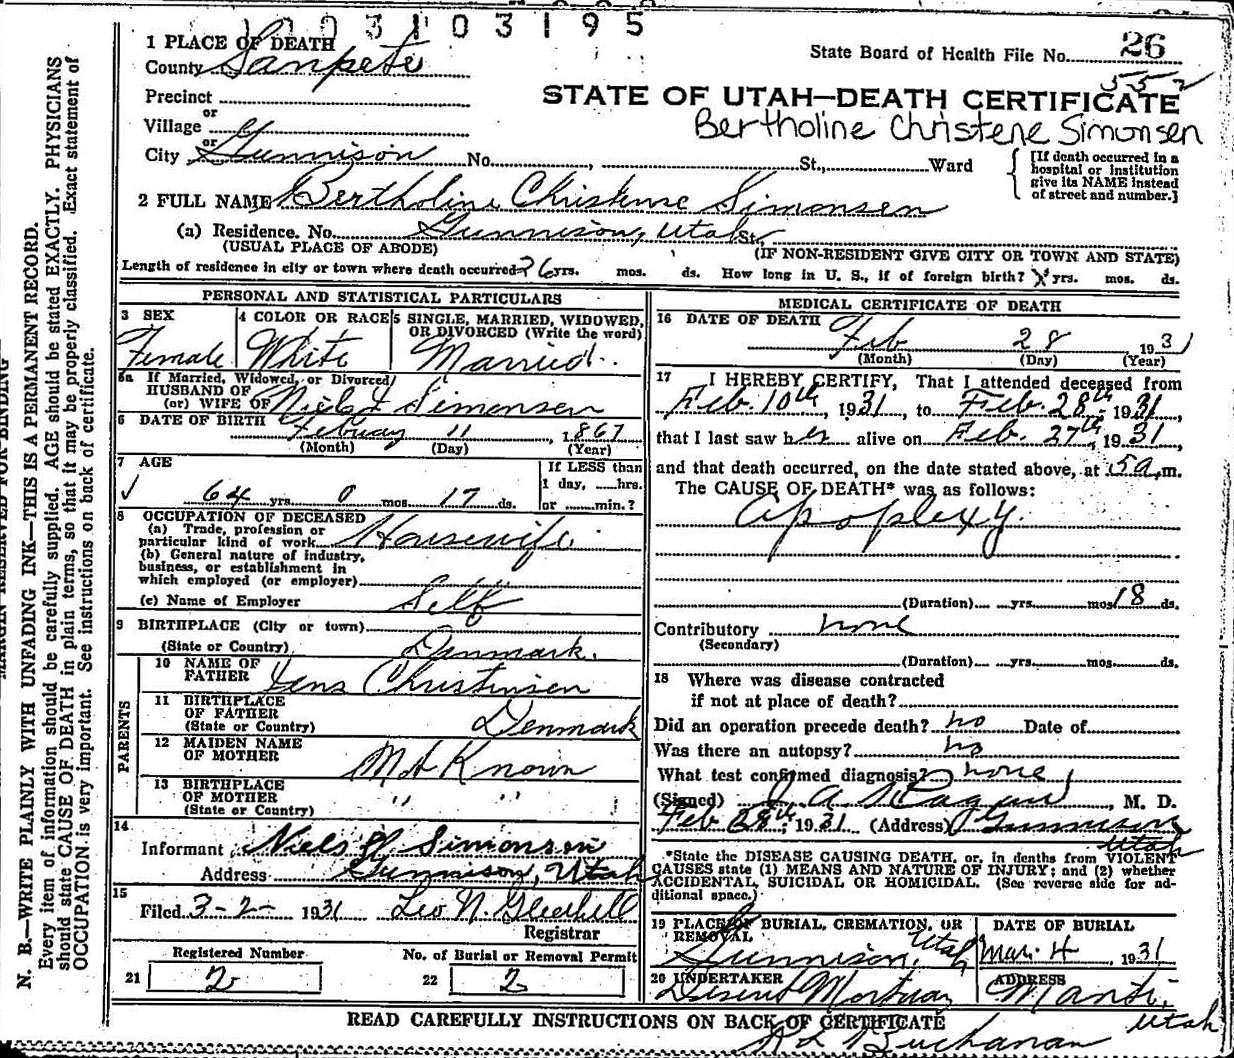 1003103195
1 PLACE OF DEATH
County Sanpete
State Board of Health File No. 26
552
Precinct
or
Village
or
City Gunnison No. St., Ward
STATE OF UTAH—DEATH CERTIFICATE
Bertholine Christene Simonsen
{ [If death occurred in a
hospital or institution
give its NAME instead
of street and number.]
2 FULL NAME Bertholine Christense Simonsen
(a) Residence. No. Gunnison, Utah St.,
(USUAL PLACE OF ABODE) (IF NON-RESIDENT GIVE CITY OR TOWN AND STATE)
Length of residence in city or town where death occurred 26 yrs. mos. ds. How long in U. S., if of foreign birth? yrs. mos. ds.
PERSONAL AND STATISTICAL PARTICULARS
3 SEX 4 COLOR OR RACE 5 SINGLE, MARRIED, WIDOWED,
OR DIVORCED (Write the word)
Female White Married
5a If Married, Widowed, or Divorced
HUSBAND OF
(or) WIFE OF Niels Simonsen
6 DATE OF BIRTH Febuary 11, 1867
(Month) (Day) (Year)
7 AGE If LESS than
1 day, hrs.
64 yrs. 0 mos. 17 ds. or min.?
8 OCCUPATION OF DECEASED
(a) Trade, profession or
particular kind of work Housewife
(b) General nature of industry,
business, or establishment in
which employed (or employer)
(c) Name of Employer Self
9 BIRTHPLACE (City or town)
(State or Country) Denmark.
PARENTS
10 NAME OF
FATHER Jens Christensen
11 BIRTHPLACE
OF FATHER
(State or Country) Denmark
12 MAIDEN NAME
OF MOTHER Not Known
13 BIRTHPLACE
OF MOTHER " "
(State or Country)
14
Informant Niels Simonsen
Address Gunnison, Utah
15
Filed 3-2- 1931 Leo N. Gledhill
Registrar
Registered Number No. of Burial or Removal Permit
21 2 22 2
MEDICAL CERTIFICATE OF DEATH
16 DATE OF DEATH
Feb 28 1931
(Month) (Day) (Year)
17 I HEREBY CERTIFY, That I attended deceased from
Feb. 10th, 1931, to Feb. 28th, 1931,
that I last saw her alive on Feb. 27th, 1931,
and that death occurred, on the date stated above, at 5 a. m.
The CAUSE OF DEATH* was as follows:
Apoplexy.
(Duration) yrs. mos. 18 ds.
Contributory none
(Secondary)
(Duration) yrs. mos. ds.
18 Where was disease contracted
if not at place of death?
Did an operation precede death? no Date of
Was there an autopsy? no
What test confirmed diagnosis? none
(Signed) J. A. Hagan, M. D.
Feb 28th, 1931 (Address) Gunnison
Utah
*State the DISEASE CAUSING DEATH, or, in deaths from VIOLENT
CAUSES state (1) MEANS AND NATURE OF INJURY; and (2) whether
ACCIDENTAL, SUICIDAL OR HOMICIDAL. (See reverse side for ad-
ditional space.)
19 PLACE OF BURIAL, CREMATION, OR
REMOVAL
Gunnison, Utah
DATE OF BURIAL
Mar. 4 1931
20 UNDERTAKER
Deseret Mortuary
ADDRESS
Manti,
Utah
READ CAREFULLY INSTRUCTIONS ON BACK OF CERTIFICATE
R L Buchanan
MARGIN RESERVED FOR BINDING
N. B.—WRITE PLAINLY WITH UNFADING INK—THIS IS A PERMANENT RECORD.
Every item of information should be carefully supplied. AGE should be stated EXACTLY. PHYSICIANS
should state CAUSE OF DEATH in plain terms, so that it may be properly classified. Exact statement of
OCCUPATION is very important. See instructions on back of certificate.